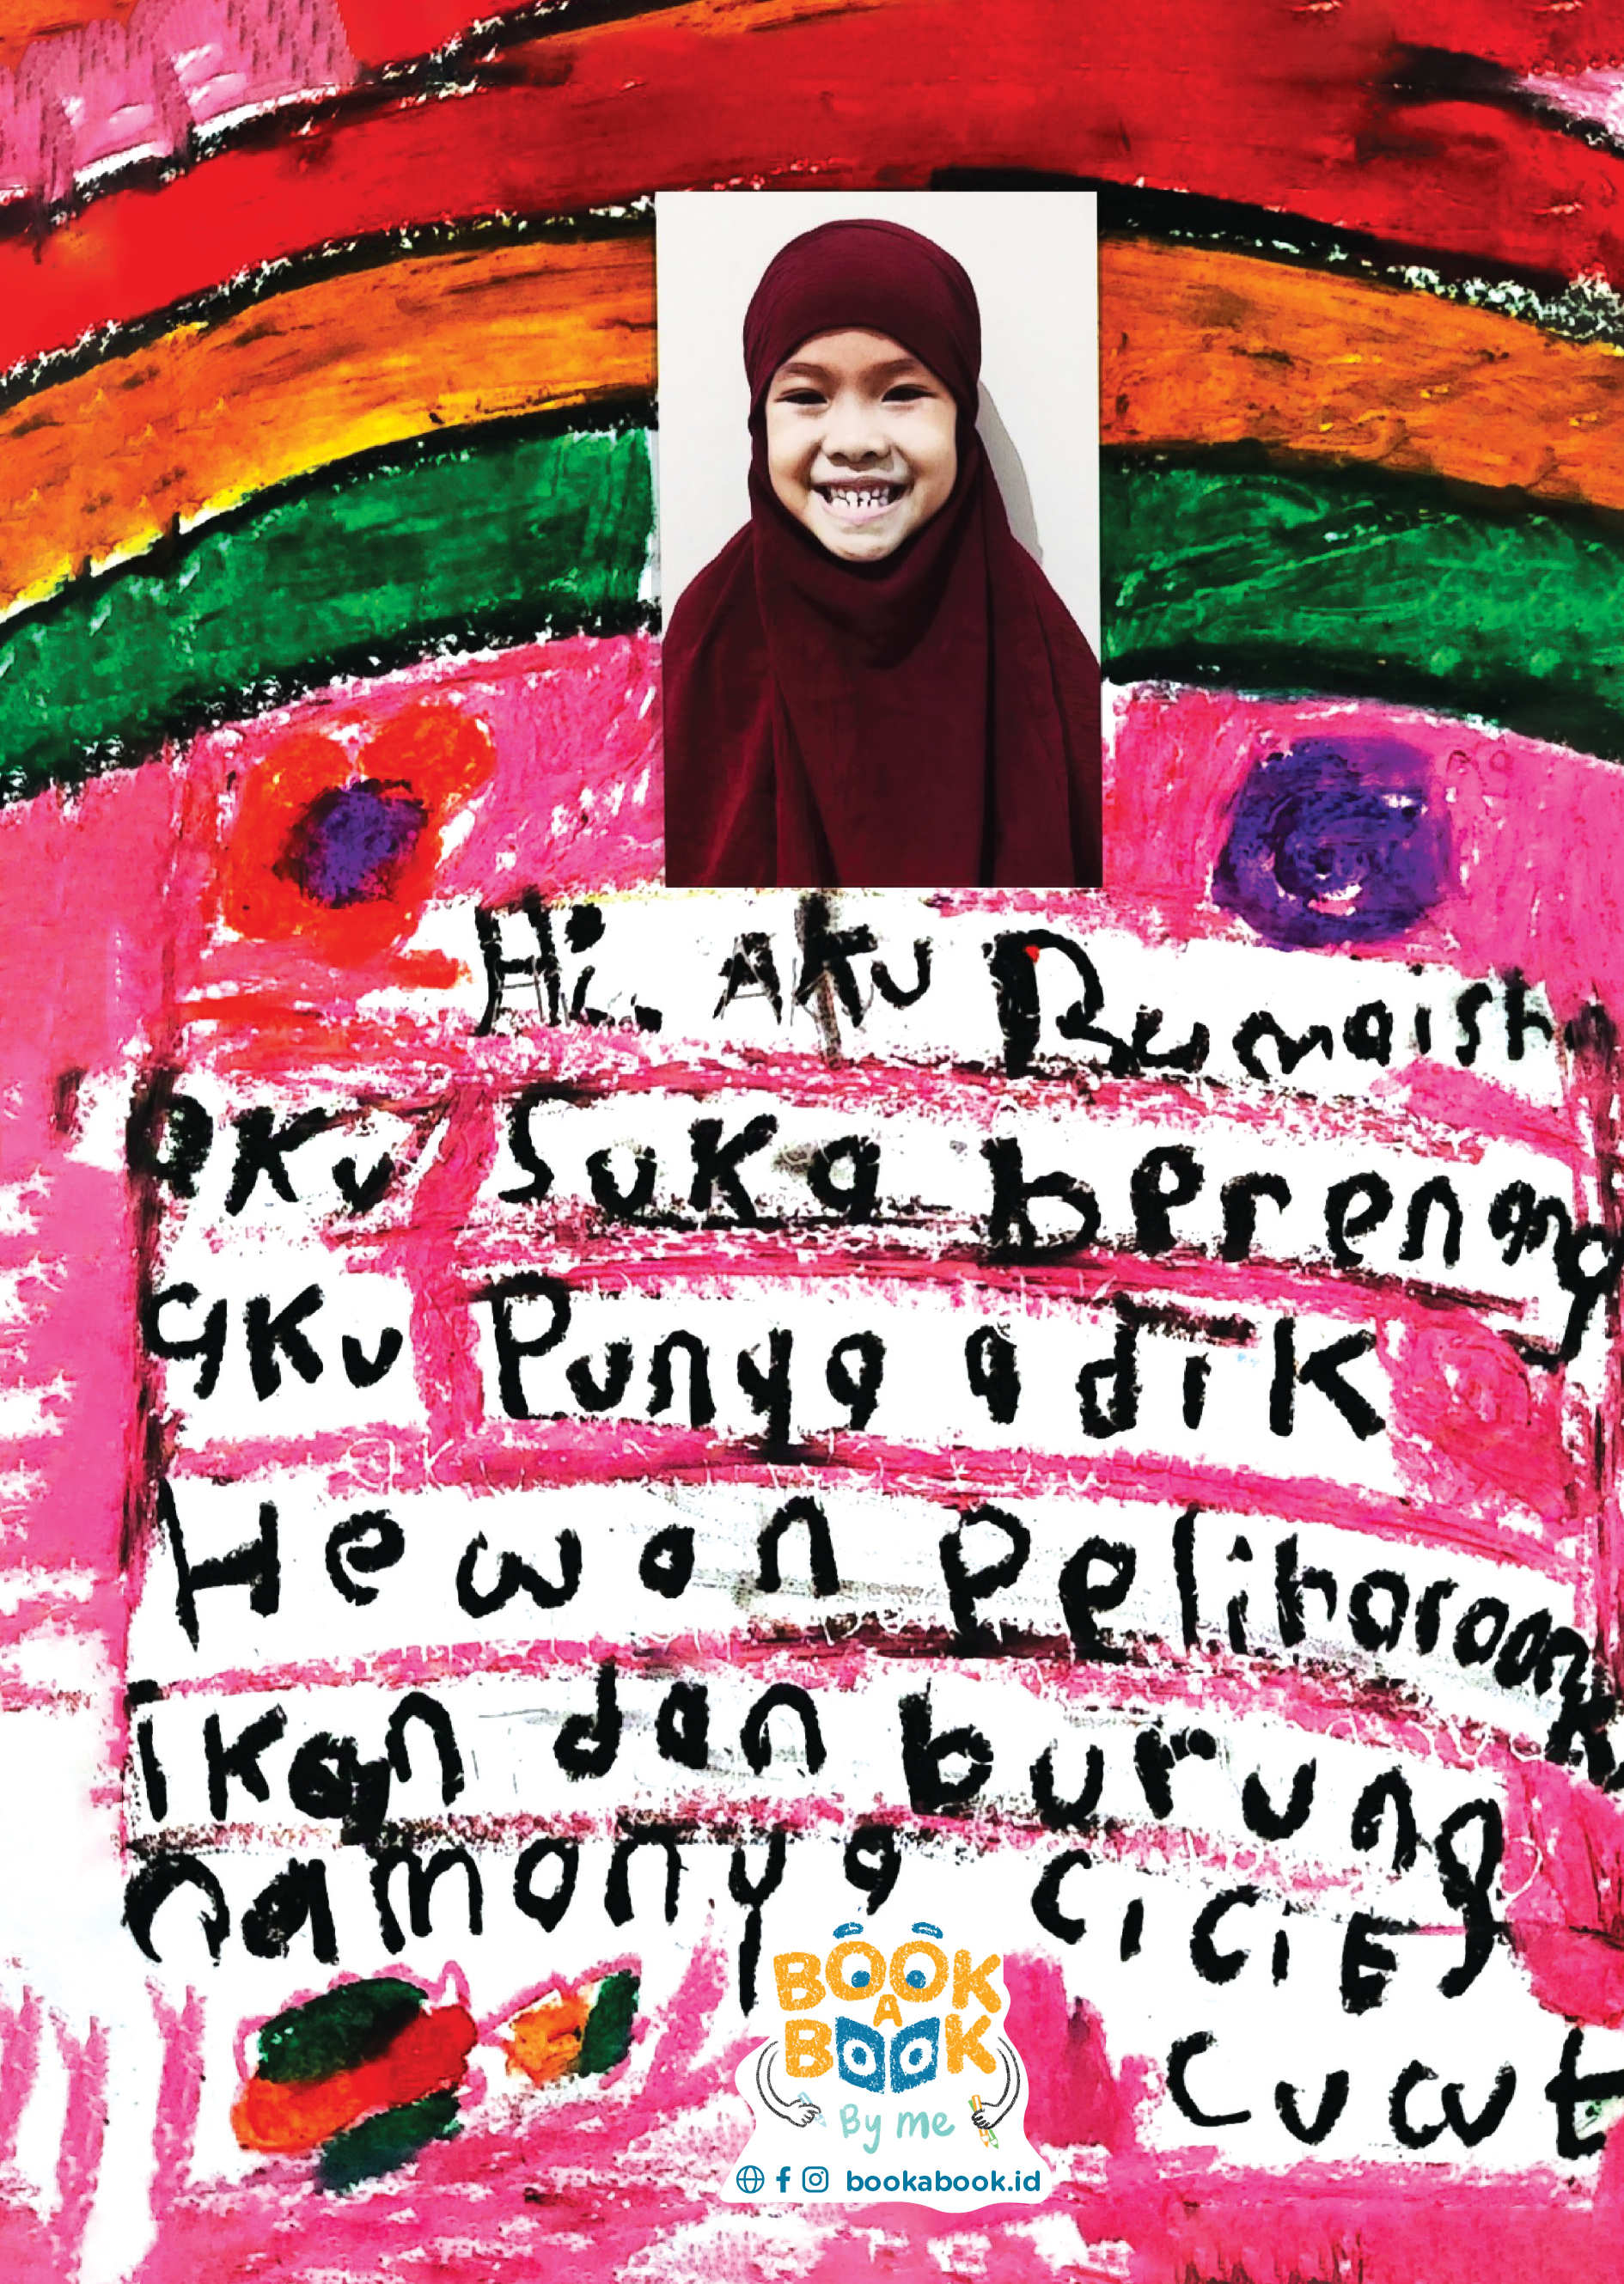 Hi. Aku Rumaish
aku suka berenang
aku Punya adik
Hewan Peliharaank
ikan dan burung
namanya CiCiE
Cucut
BOOK
A
BOOK
By me
bookabook.id